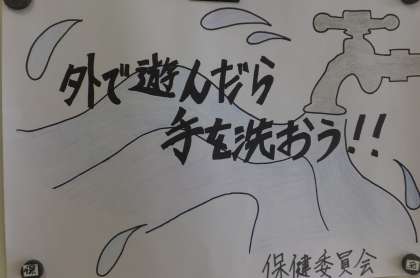 外で遊んだら
手を洗おう!!
保健委員会